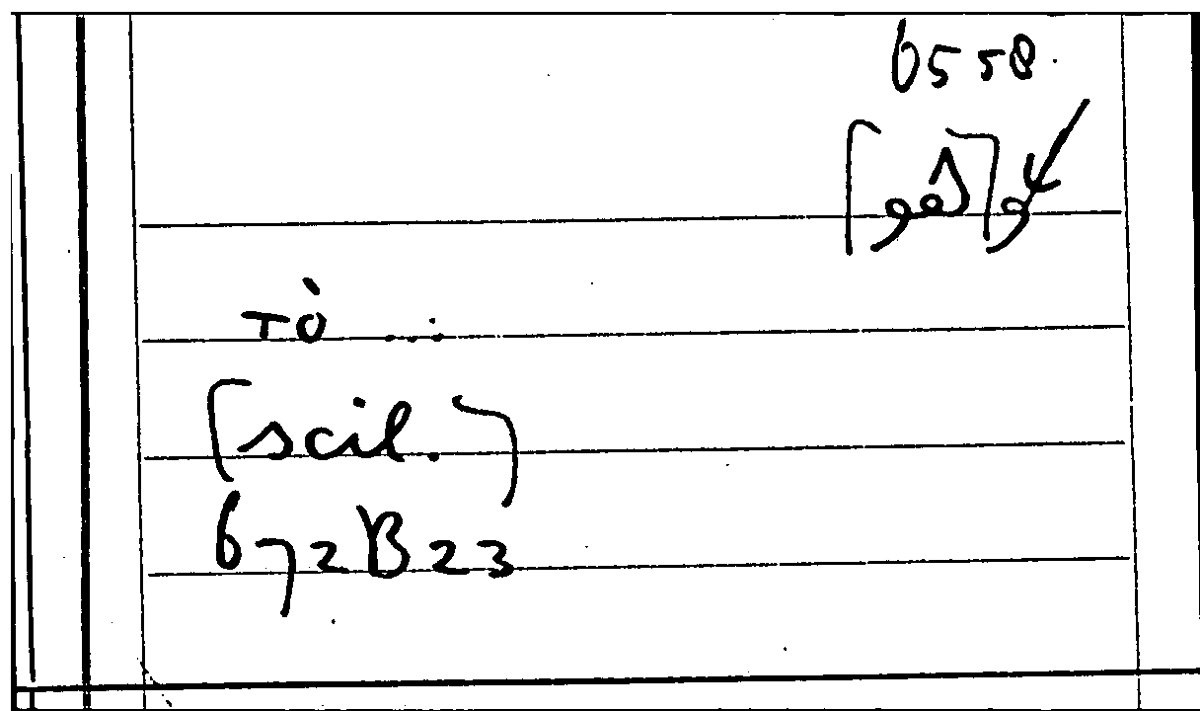 6558.
τὸ ...
[scil.]
672B23